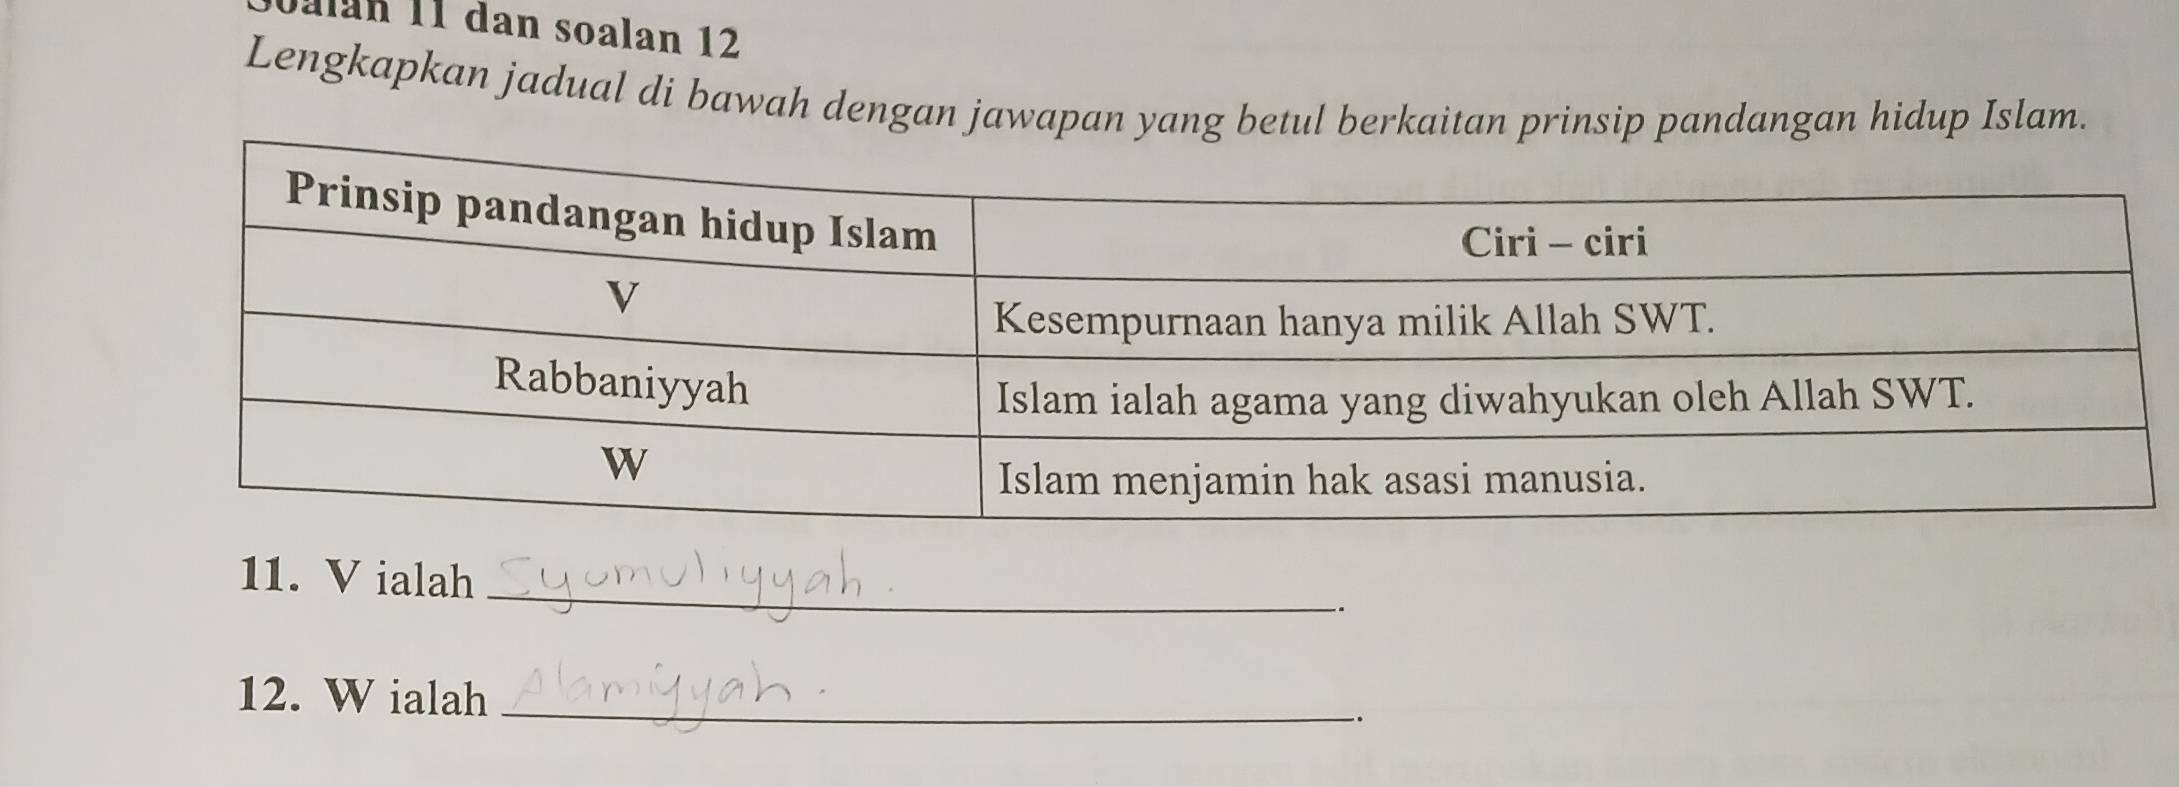 Soalan 11 dan soalan 12
Lengkapkan jadual di bawah dengan jawapan yang betul berkaitan prinsip pandangan hidup Islam.
Prinsip pandangan hidup Islam Ciri – ciri
V Kesempurnaan hanya milik Allah SWT.
Rabbaniyyah Islam ialah agama yang diwahyukan oleh Allah SWT.
W Islam menjamin hak asasi manusia.
11. V ialah Syumuliyyah.
12. W ialah Alamiyyah.